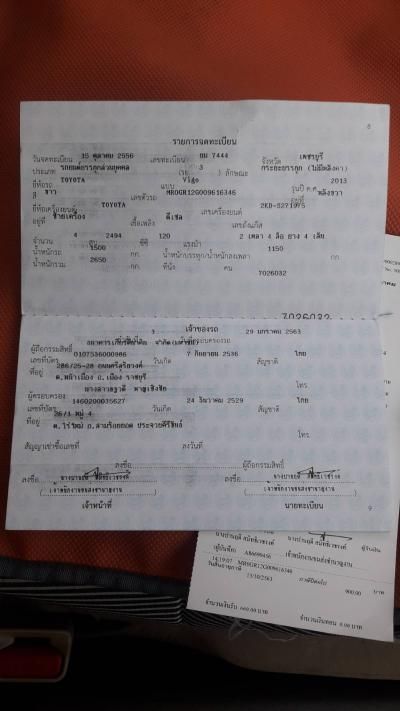 8
รายการจดทะเบียน
วันจดทะเบียน 15 ตุลาคม 2556 เลขทะเบียน ยม 7444 จังหวัด เพชรบุรี
ประเภท รถยนต์บรรทุกส่วนบุคคล (รย. 3 ลักษณะ กระบะบรรทุก (ไม่มีหลังคา)
ยี่ห้อรถ TOYOTA แบบ Vigo รุ่นปี ค.ศ. 2013
สี ขาว เลขตัวรถ MR0GR12G009616346 อยู่ที่ หลังขวา
ยี่ห้อเครื่องยนต์ TOYOTA เลขเครื่องยนต์ 2KD-S271975
อยู่ที่ ซ้ายเครื่อง เชื้อเพลิง ดีเซล เลขถังแก๊ส
จำนวน 4 2494 ซีซี 120 แรงม้า 2 เพลา 4 ล้อ ยาง 4 เส้น
น้ำหนักรถ 1500 กก. น้ำหนักบรรทุก/น้ำหนักลงเพลา 1150 กก.
น้ำหนักรวม 2650 กก. ที่นั่ง คน 7026032
7026032
3 เจ้าของรถ 29 มกราคม 2563
ผู้ถือกรรมสิทธิ์ จำกัด
เลขที่บัตร 0107536000986 วันเกิด 7 กันยายน 2536 สัญชาติ ไทย
ที่อยู่ 286/25-28 ถนนศรีสุริยวงศ์
ต.หน้าเมือง อ.เมือง ราชบุรี โทร.
ผู้ครอบครอง
เลขที่บัตร 1460200035627 วันเกิด 24 ธันวาคม 2529 สัญชาติ ไทย
ที่อยู่ 26/1 หมู่ 4
ต.ไร่ใหม่ อ.สามร้อยยอด ประจวบคีรีขันธ์ โทร.
สัญญาเช่าซื้อเลขที่ ลงวันที่
ลงชื่อ ผู้ถือกรรมสิทธิ์
ลงชื่อ ลงชื่อ
เจ้าหน้าที่ นายทะเบียน
9
ผู้รับเงิน
14:19:07 MR0GR12G009616346
13/10/2563 900.00 บาท
จำนวนเงินรับ บาท จำนวนเงินทอน 0.00 บาท